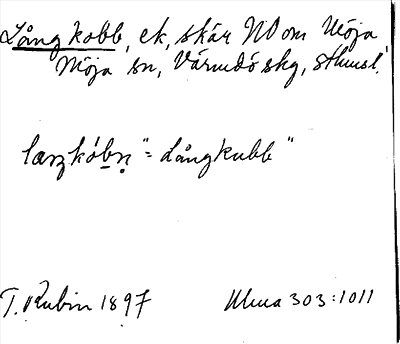 Långkobb, ek, skär NO om Möja
Möja sn, Värmdö skg, sthmsl.
laŋkóbn "= Långkubb"
T. Rubin 1897 Ulma 303:1011